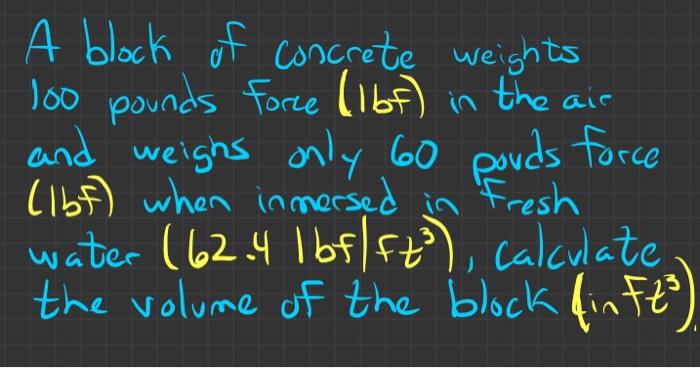 A block of concrete weights
100 pounds force (lbf) in the air
and weighs only 60 pouds force
(lbf) when inmersed in fresh
water (62.4 lbf/ft³), calculate
the volume of the block (in ft³).